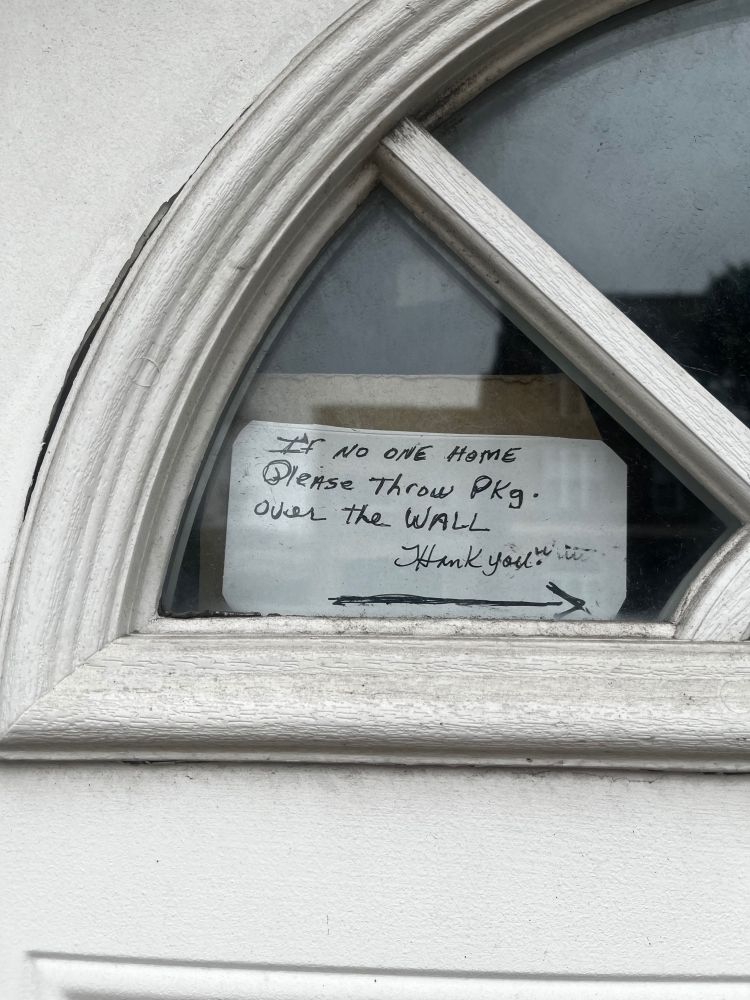 IF NO ONE HOME
Please Throw PKg.
over the WALL
Thank you!!